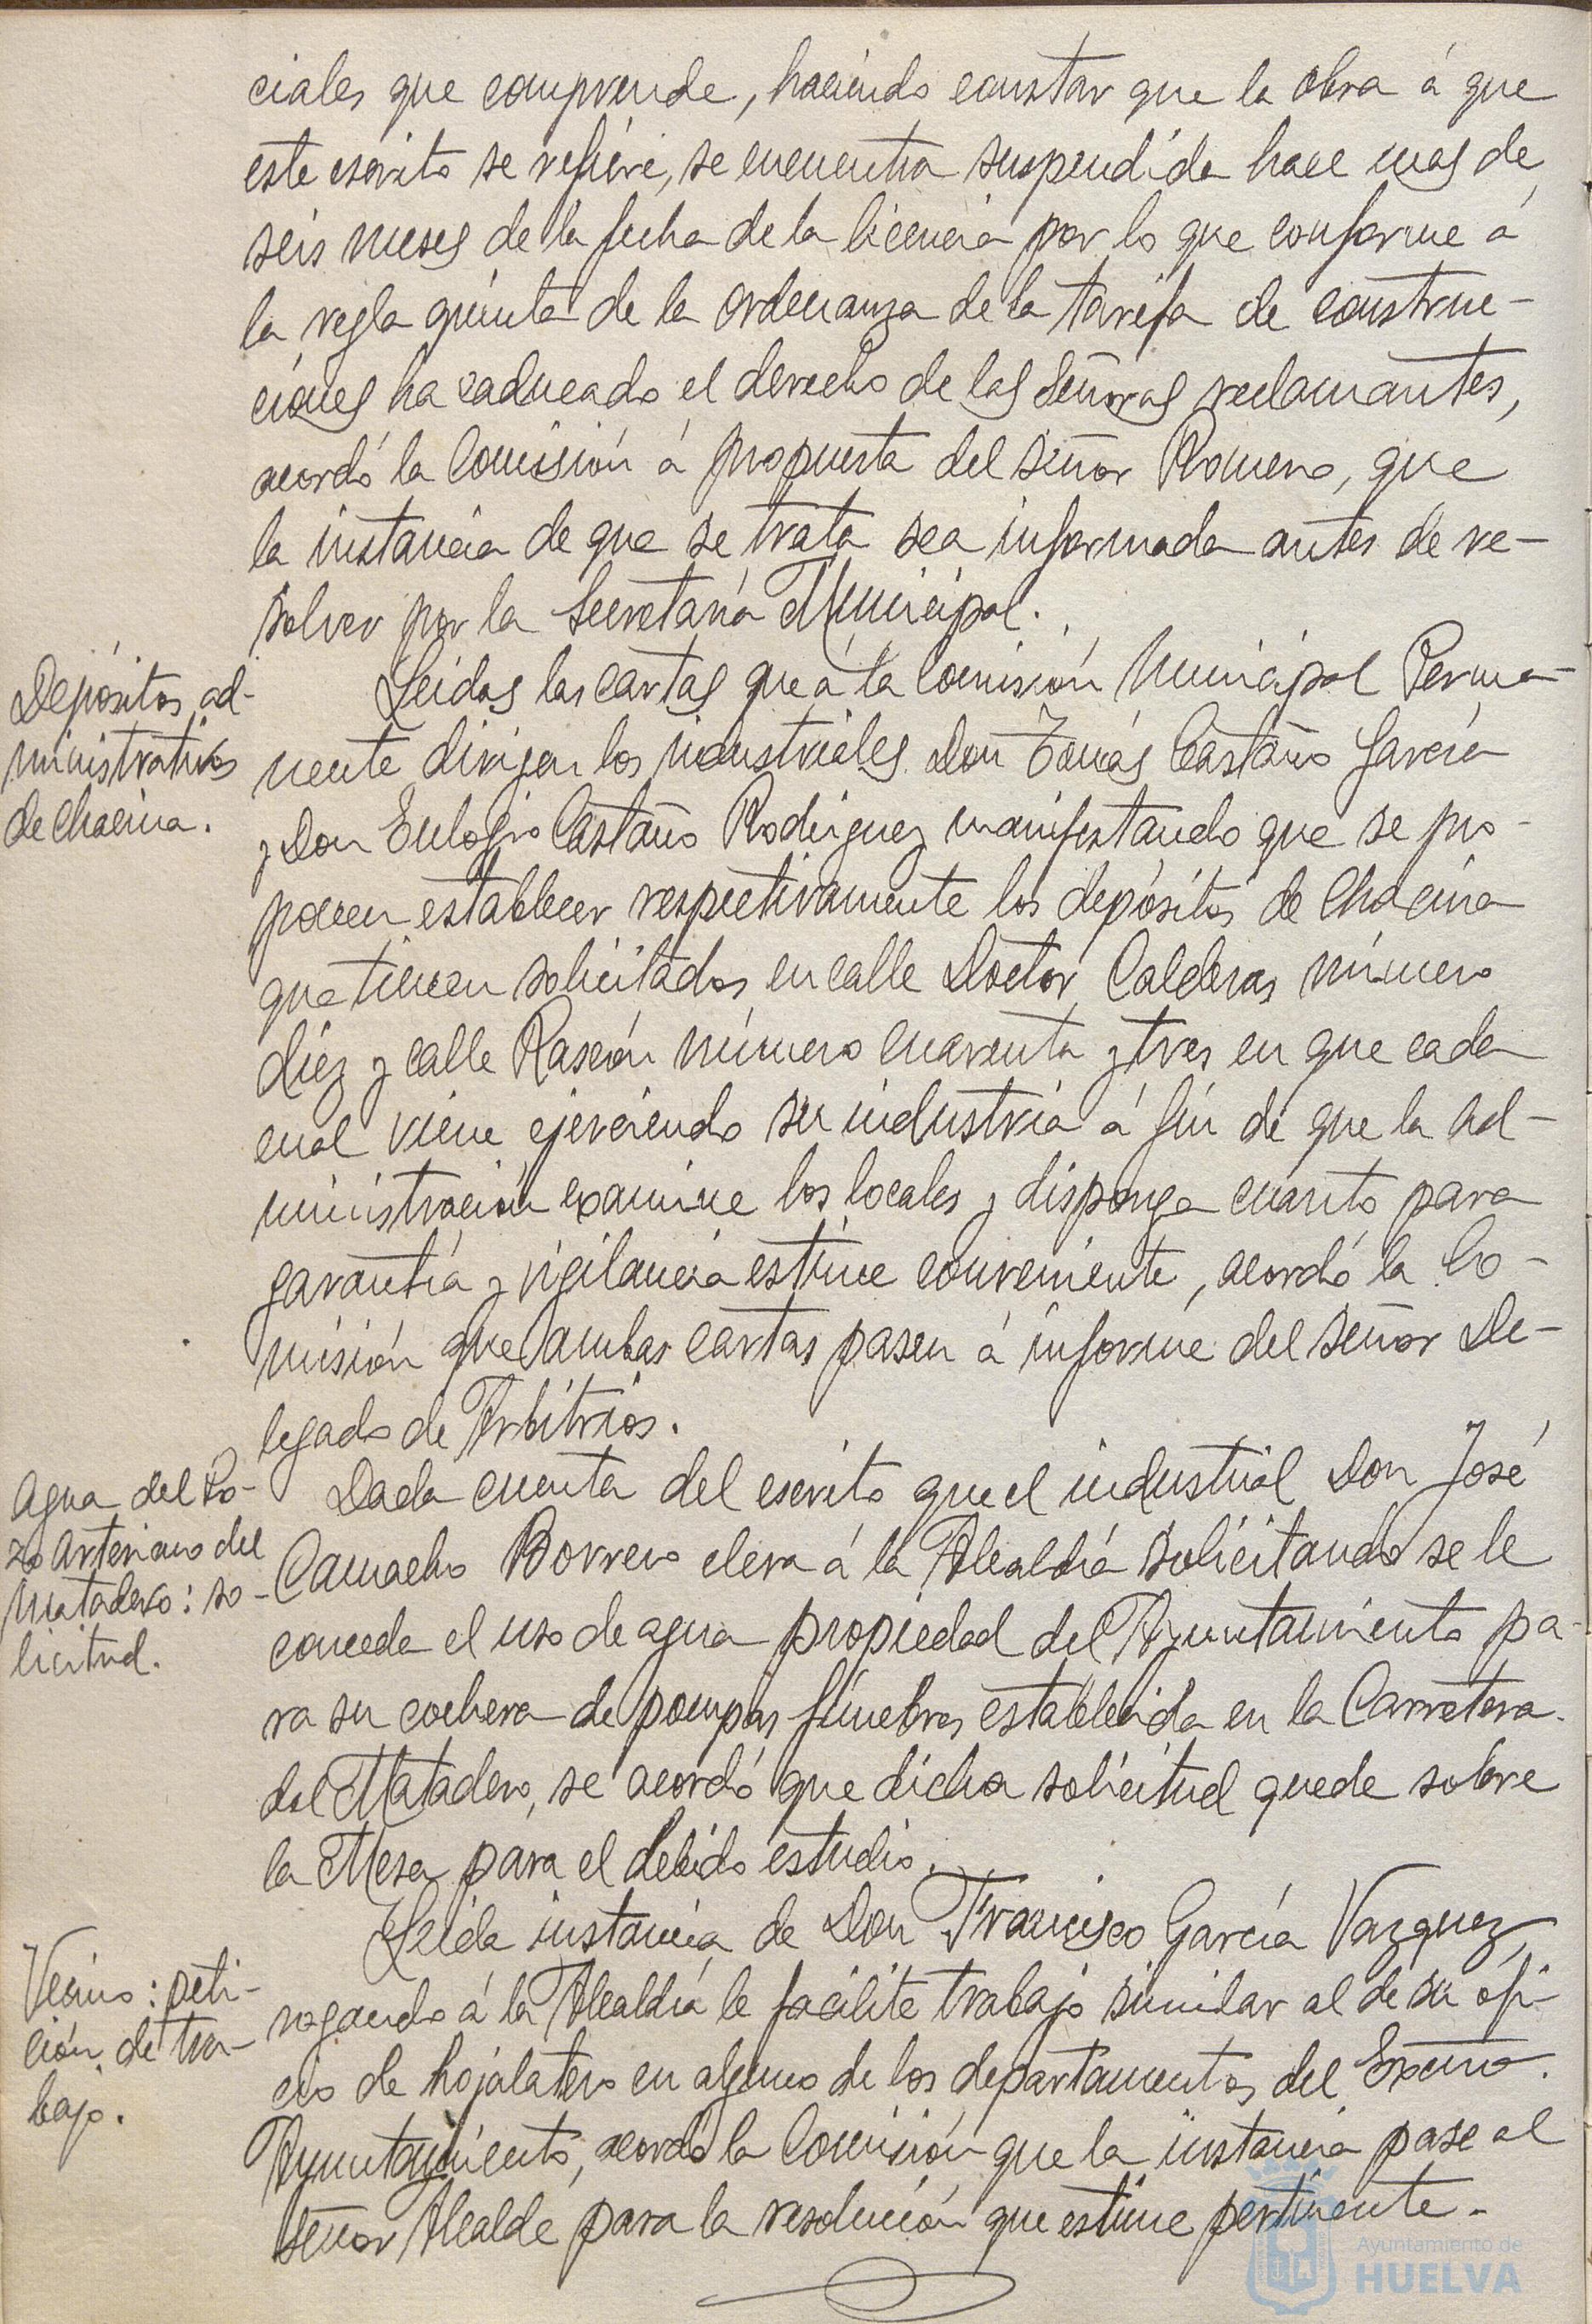 ciales que comprende, haciendo constar que la obra á que
este escrito se refiere, se encuentra suspendida hace mas de
seis meses de la fecha de la licencia por lo que conforme á
la regla quinta de la Ordenanza de la tarifa de construc-
ciones ha caducado el derecho de las Señoras reclamantes,
acordó la Comisión á propuesta del señor Romero, que
la instancia de que se trata sea informada antes de re-
solver por la Secretaría Municipal.
Depósitos ad-
ministrativos
de chacina.
Leidas las cartas que á la Comisión Municipal Perma-
nente dirijen los industriales Don Tomás Castaño García
y Don Eulogio Castaño Rodriguez manifestando que se pro-
ponen establecer respectivamente los depósitos de Chacina
que tienen solicitados en calle Doctor Calderas número
diez y calle Rascón número cuarenta y tres en que cada
cual viene ejerciendo su industria á fin de que la ad-
ministración examine los locales y disponga cuanto para
garantía y vigilancia estime conveniente, acordó la Co-
misión que ambas cartas pasen á informe del señor De-
legado de Arbitrios.
Agua del Po-
zo Artesiano del
Matadero: so-
licitud.
Dada cuenta del escrito que el industrial Don José
Camacho Borrero eleva á la Alcaldía solicitando se le
conceda el uso de agua propiedad del Ayuntamiento pa-
ra su cochera de pompas fúnebres establecida en la Carretera
del Matadero, se acordó que dicha solicitud quede sobre
la Mesa para el debido estudio.
Vecino: peti-
ción de tra-
bajo.
Leida instancia de Don Francisco García Vazquez
rogando á la Alcaldía le facilite trabajo similar al de su ofi-
cio de hojalatero en alguno de los departamentos del Excmo.
Ayuntamiento, acordó la Comisión que la instancia pase al
señor Alcalde para la resolución que estime pertinente.
Ayuntamiento de
HUELVA